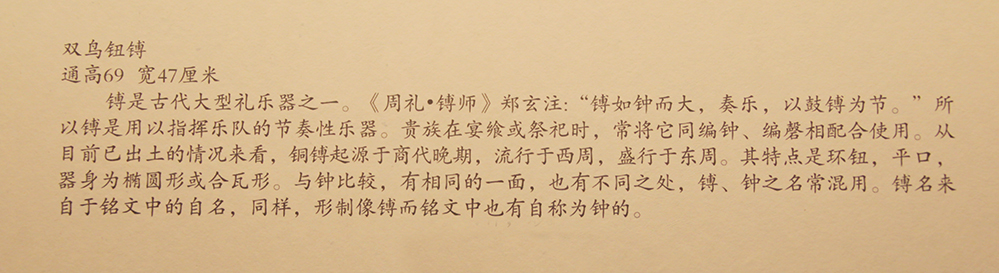 双鸟钮镈
通高69 宽47厘米
镈是古代大型礼乐器之一。《周礼•镈师》郑玄注：“镈如钟而大，奏乐，以鼓镈为节。”所
以镈是用以指挥乐队的节奏性乐器。贵族在宴飨或祭祀时，常将它同编钟、编磬相配合使用。从
目前已出土的情况来看，铜镈起源于商代晚期，流行于西周，盛行于东周。其特点是环钮，平口，
器身为椭圆形或合瓦形。与钟比较，有相同的一面，也有不同之处，镈、钟之名常混用。镈名来
自于铭文中的自名，同样，形制像镈而铭文中也有自称为钟的。